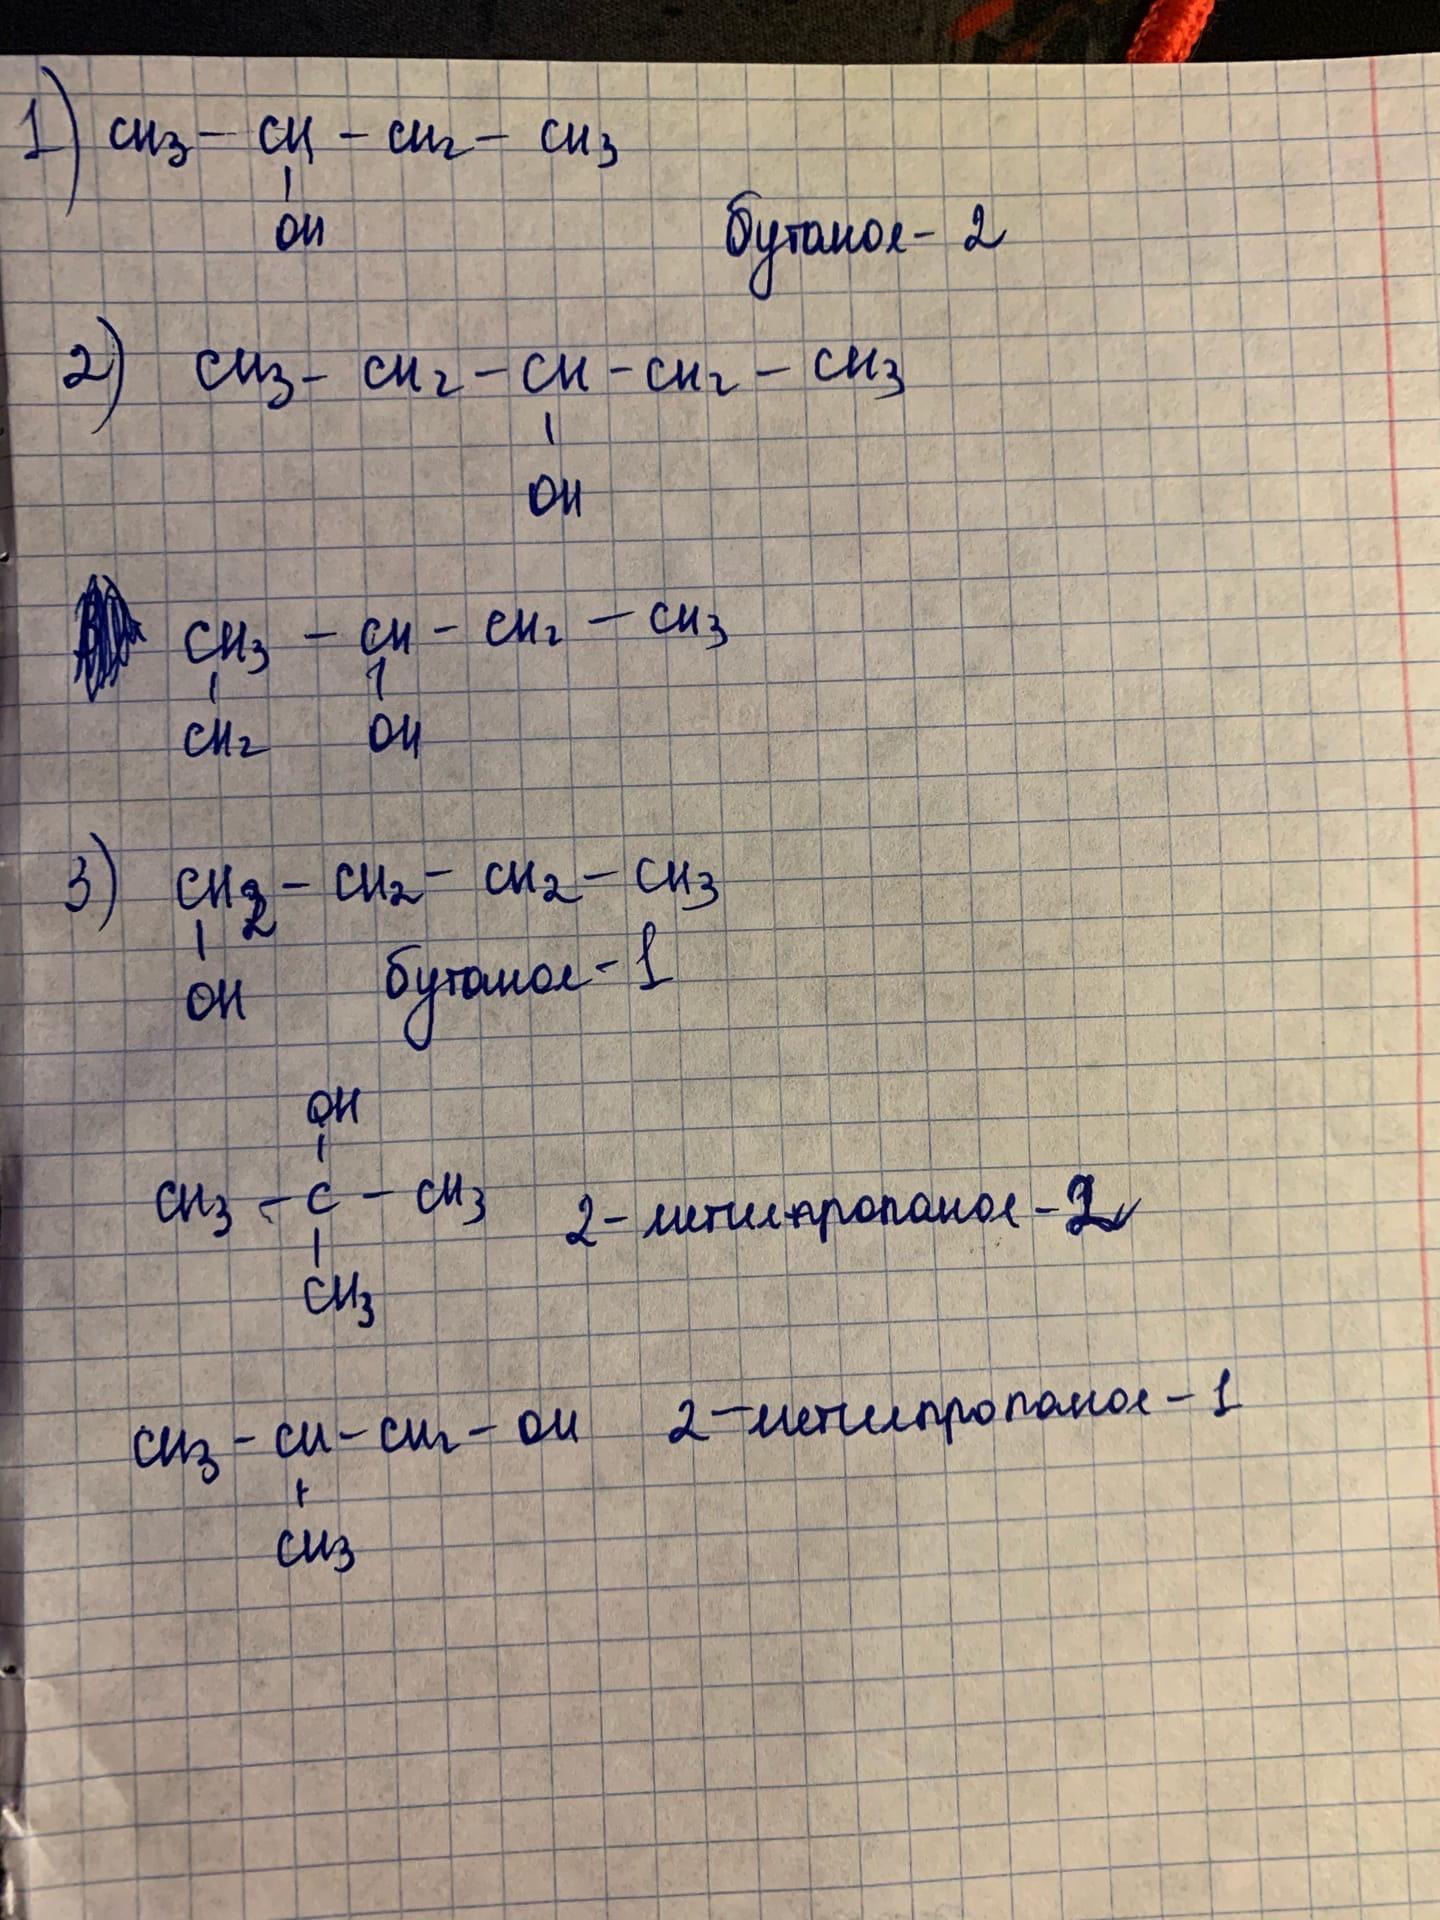 1) CH3 – CH – CH2 – CH3
OH
бутанол – 2
2) CH3 – CH2 – CH – CH2 – CH3
OH
CH3 – CH – CH2 – CH3
CH2 OH
3) CH2 – CH2 – CH2 – CH3
OH бутанол – 1
OH
CH3 – C – CH3 2 – метилпропанол – 2
CH3
CH3 – CH – CH2 – OH 2 – метилпропанол – 1
CH3